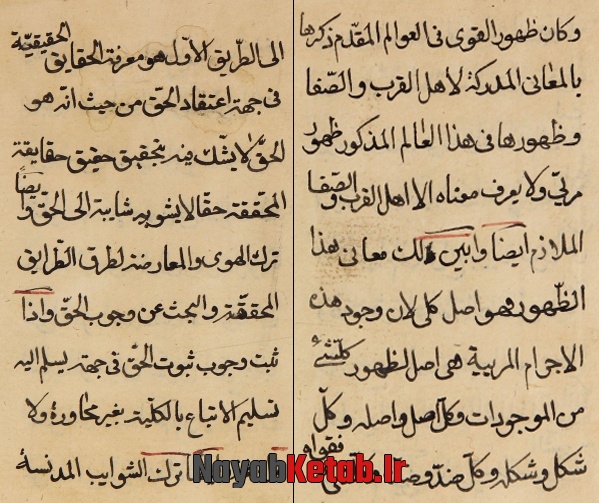 وكان ظهور القوى فى العوالم المقدّم ذكرها
بالمعانى المدركة لأهل القرب والصّفا
وظهورها فى هذا العالم المذكور ظهور
مرئى ولا يعرف معناه الا اهل القرب والصّفا
الملازم ايضا وابين لك معانى هذا
الظّهور فهو اصل كلى لان وجود هذه
الاجرام المربية هى اصل لظهور كلّ شئ
من الموجودات وكل اصل واصله وكلّ
شكل وشكله وكلّ ضدّ
الى الطّريق الاوّل هو معرفة الحقايق الحقيقيّة
فى جهة اعتقاد الحقّ من حيث انّه هو
الحقّ لا يشك فيه بتحقيق حقيق حقايقه
المحقّقة حقّا لا يشوبه شايبة الى الحقّ وايضا
ترك الهوى والمعارضة لطرق الطّرايق
المحقّقة والبحث عن وجوب الحقّ واذا
ثبت وجوب ثبوت الحقّ فى جهة يسلم اليه
تسليم الاتباع بالكليّة بغير محاورة ولا
ترك الشوايب المدنسة
NayabKetab.Ir